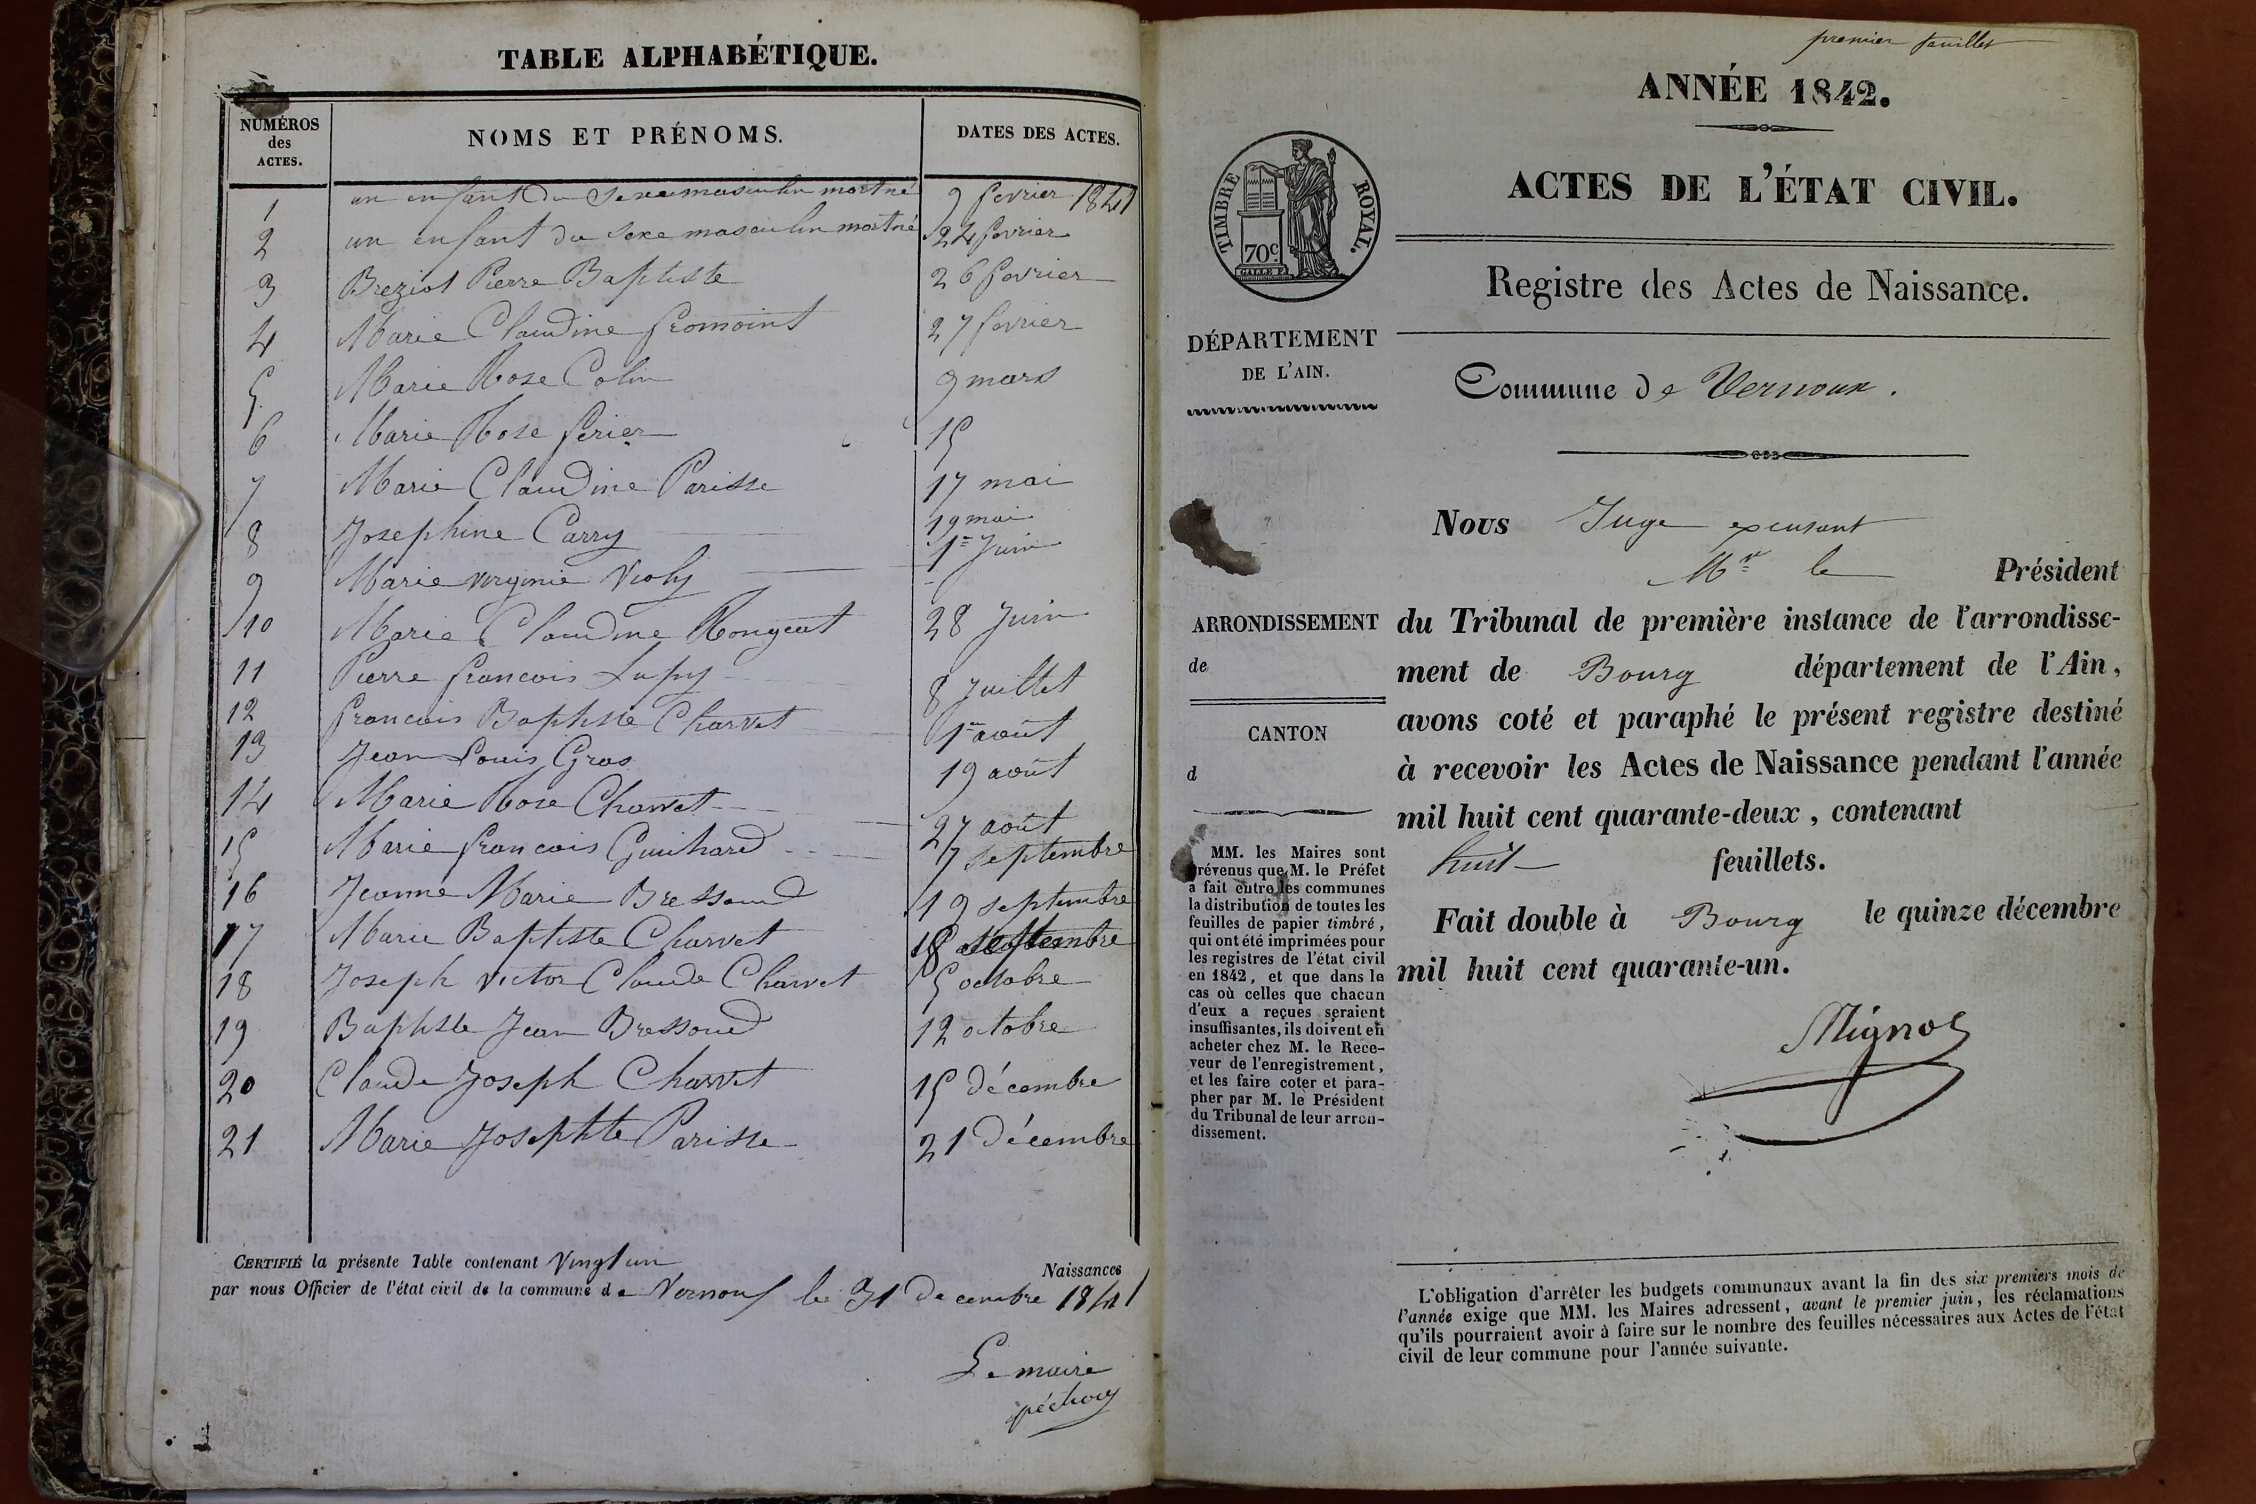 TABLE ALPHABÉTIQUE.
NUMÉROS des ACTES. NOMS ET PRÉNOMS. DATES DES ACTES.
1 un enfant du sexe masculin mortné 9 fevrier 1841
2 un enfant du sexe masculin mortné 24 fevrier
3 Breziot Pierre Baptiste 26 fevrier
4 Marie Claudine fromoint 27 fevrier
5 Marie Rose Colin 9 mars
6 Marie Rose ferier 15
7 Marie Claudine Parisse 17 mai
8 Josephine Carry 19 mai
9 Marie virginie Violy 1er Juin
10 Marie Claudine Rongeat 28 Juin
11 Pierre francois Lupy 8 Juillet
12 francois Baptiste Charvet 1er août
13 Jean Louis Gras 19 août
14 Marie Rose Charvet 27 août
15 Marie francois Guichard 7 septembre
16 Jeanne Marie Bressoud 19 septembre
17 Marie Baptiste Charvet septembre
18 Joseph victor Claude Charvet 5 octobre
19 Baptiste Jean Bressoud 12 octobre
20 Claude Joseph Charvet 15 décembre
21 Marie Josephte Parisse 21 Décembre
CERTIFIÉ la présente Table contenant Vingt un Naissances
par nous Officier de l'état civil de la commune de Vernoux le 31 Decembre 1841
Le maire
péchoux
premier feuillet
ANNÉE 1842.
ACTES DE L'ÉTAT CIVIL.
TIMBRE ROYAL.
70c
Registre des Actes de Naissance.
DÉPARTEMENT
DE L'AIN.
Commune de Vernoux.
Nous Juge excusant
Mr le Président
ARRONDISSEMENT
de
CANTON
d
du Tribunal de première instance de l'arrondisse-
ment de Bourg département de l'Ain,
avons coté et paraphé le présent registre destiné
à recevoir les Actes de Naissance pendant l'année
mil huit cent quarante-deux, contenant
huit feuillets.
Fait double à Bourg le quinze décembre
mil huit cent quarante-un.
MM. les Maires sont
prévenus que M. le Préfet
a fait entre les communes
la distribution de toutes les
feuilles de papier timbré,
qui ont été imprimées pour
les registres de l'état civil
en 1842, et que dans le
cas où celles que chacun
d'eux a reçues seraient
insuffisantes, ils doivent en
acheter chez M. le Rece-
veur de l'enregistrement,
et les faire coter et para-
pher par M. le Président
du Tribunal de leur arron-
dissement.
Mignot
L'obligation d'arrêter les budgets communaux avant la fin des six premiers mois de
l'année exige que MM. les Maires adressent, avant le premier juin, les réclamations
qu'ils pourraient avoir à faire sur le nombre des feuilles nécessaires aux Actes de l'état
civil de leur commune pour l'année suivante.